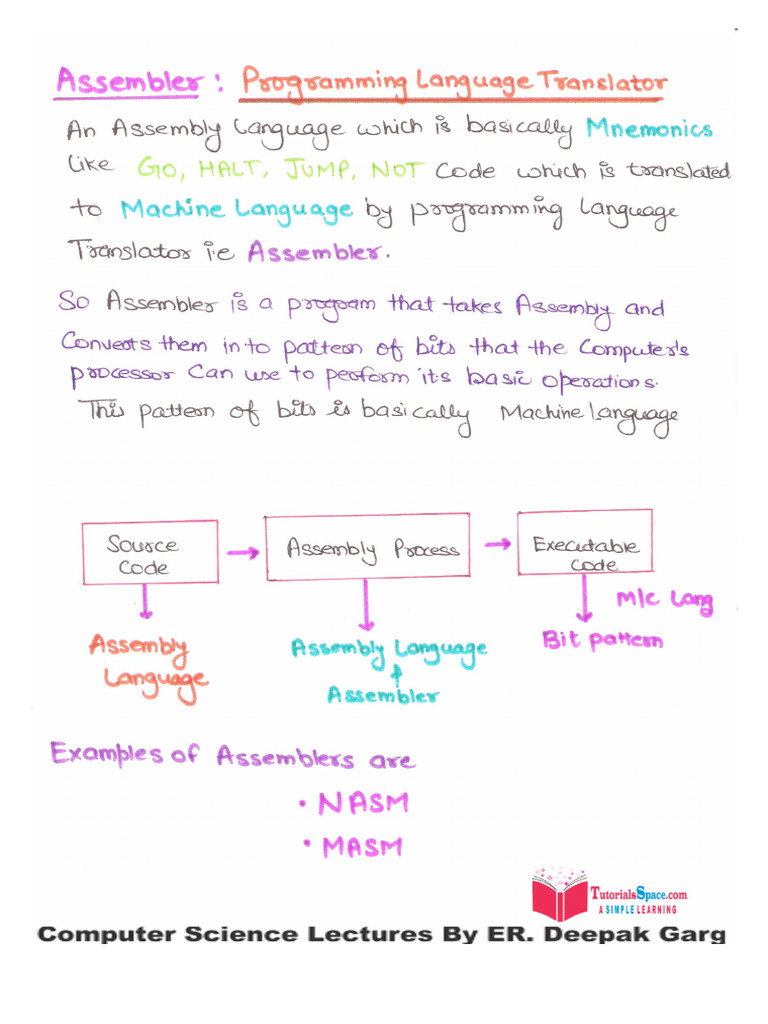 Assembler : Programming Language Translator
An Assembly Language which is basically Mnemonics
like GO, HALT, JUMP, NOT Code which is translated
to Machine Language by programming Language
Translator i.e Assembler.
So Assembler is a program that takes Assembly and
Converts them in to pattern of bits that the Computer's
processor Can use to perform it's basic operations.
This pattern of bits is basically Machine Language
Source
Code
Assembly Process
Executable
Code
M/c Lang
Assembly
Language
Assembly Language
+
Assembler
Bit pattern
Examples of Assemblers are
• NASM
• MASM
TutorialsSpace.com
A SIMPLE LEARNING
Computer Science Lectures By ER. Deepak Garg